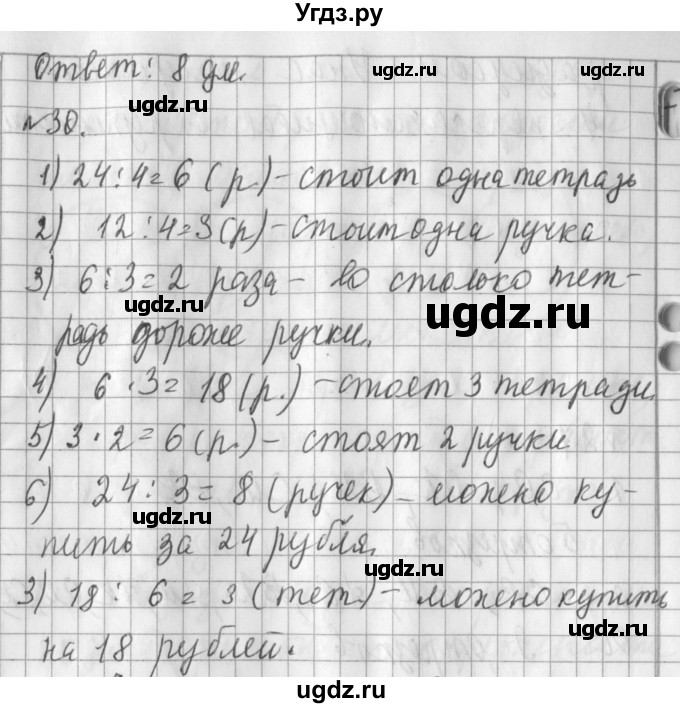 Угдз.ру
Ответ: 8 дм.
ugdz.ru ugdz.ru
ugdz.ru
№30.
1) 24:4=6 (р.)-стоит одна тетрадь
ugdz.ru
2) 12:4=3(р)-стоит одна ручка.
3) 6:3=2 раза- во столько тет-
ugdz.ru
радь дороже ручки.
4) 6·3=18(р.)-стоят 3 тетради.
ugdz.ru
5) 3·2=6(р.)- стоят 2 ручки
6) 24:3=8 (ручек)- можно ку-
ugdz.ru
пить за 24 рубля.
ugdz.ru
3) 18: 6=3 (тет.)- можно купить
ugdz.ru
на 18 рублей.
ugdz.ru
ugdz.ru